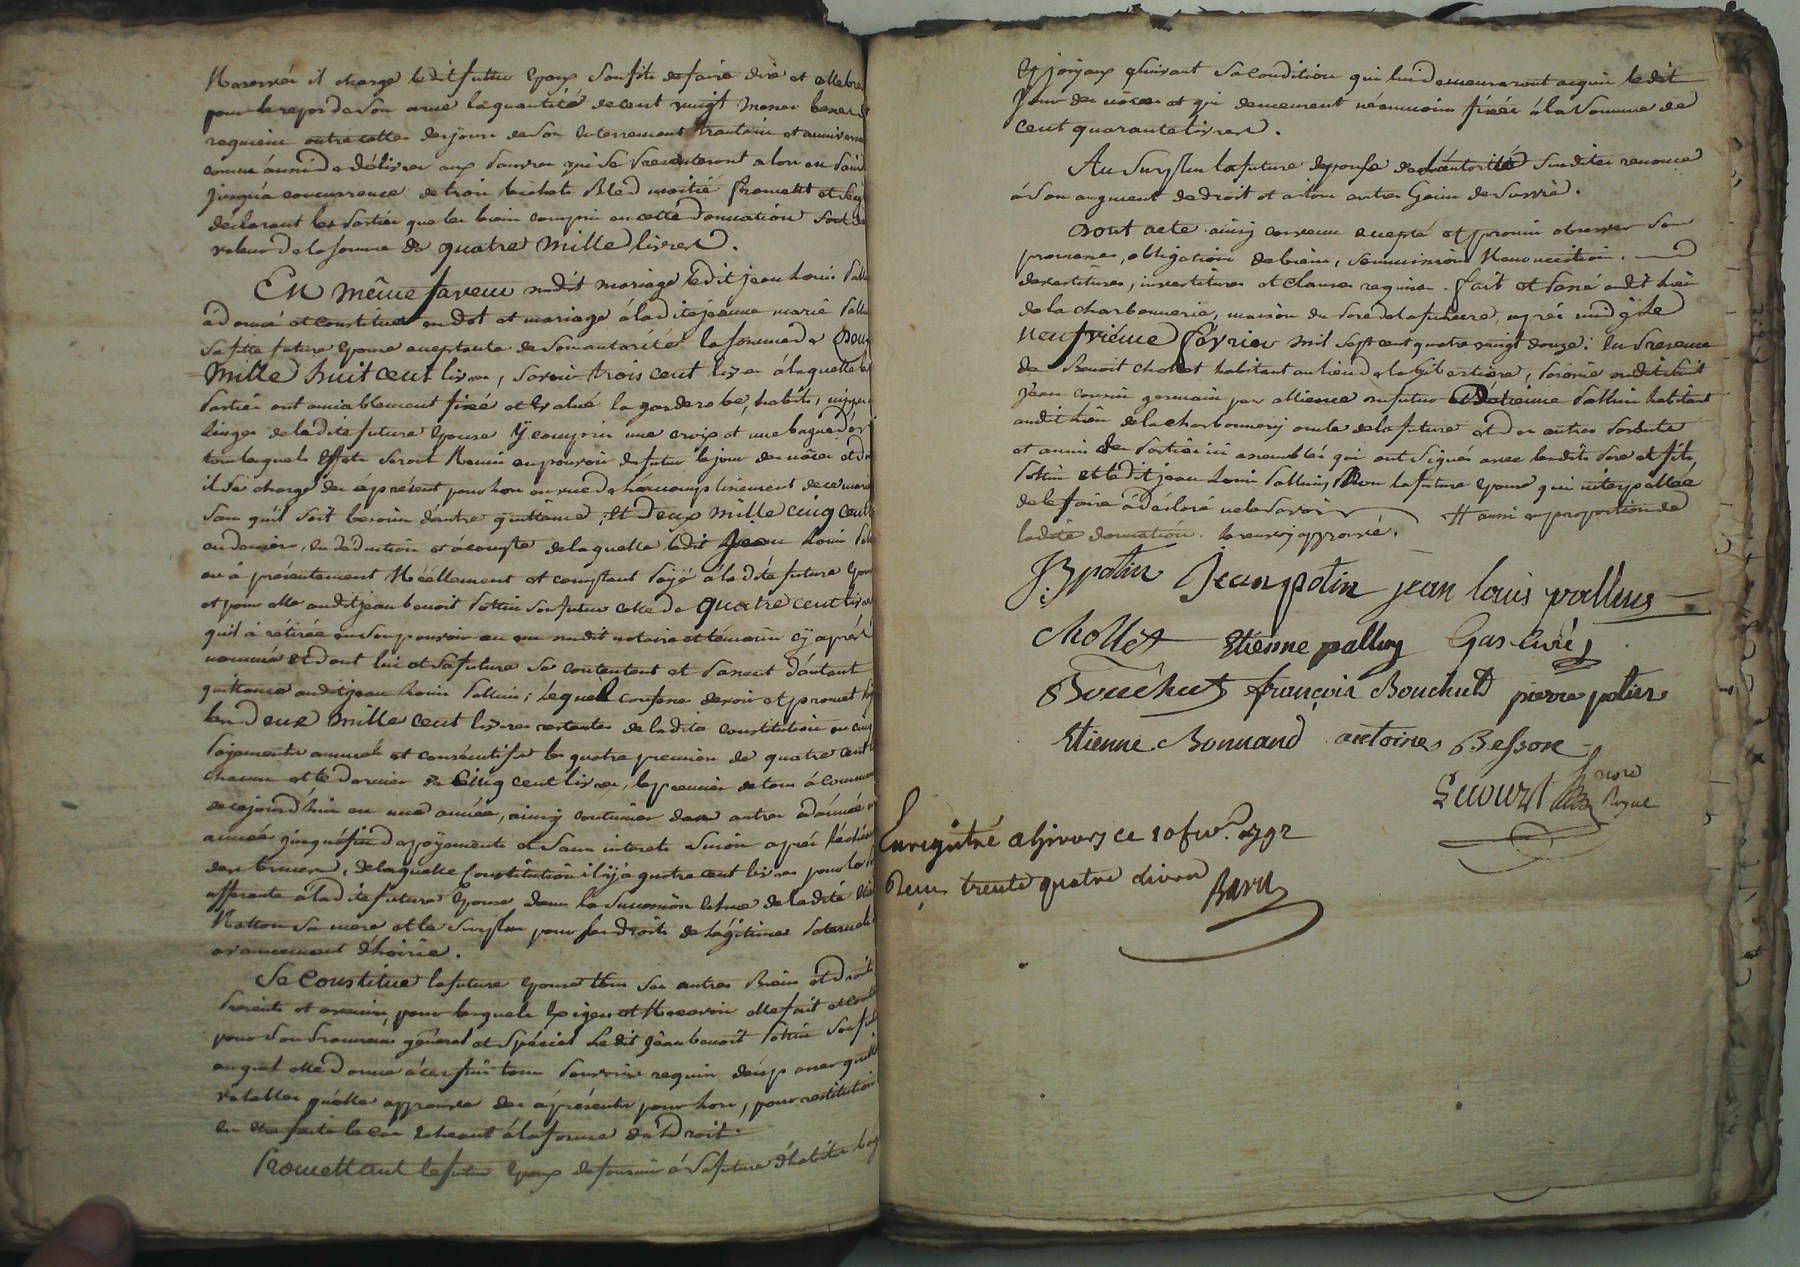 Reservée il charge ledit futur epoux son fils de faire dire et celebrer
pour le repos de son ame la quantité de cent vingt messes basses de
requiem outre celles des jours de son enterrement trantain et anniversaire
comme aussi de délivrer aux pauvres qui se presenteront alors en pain
jusqu'a concurrence de trois bichets bled moitié froment et seigle
déclarant les parties que les biens compris en cette donnation sont de
valeur de la somme de quatre mille livres.
En même faveur dudit mariage ledit jean Louis Pallui
à donné et constitué en dot et mariage à ladite jeanne marie Pallui
sa fille future epouse acceptante de son autorité la somme de Deux
Mille huit cent livres, savoir trois cent livres à laquelle les
parties ont amiablement fixé et évalué la garderobe, habits, nippes
linges de ladite future epouse y compris une croix et une bague d'or
tous lesquels effets seront Remis au pouvoir du futur le jour des nôces et dont
il se charge dès àprésent pour lors en vue de l'accomplissement de ce mariage
sans qu'il soit besoin d'autre quittance, et Deux mille cinq cent
en denier, en déduction et àcompte de laquelle ledit Jean Louis Pallui
a à présentement Réellement et comptant payé à ladite future epouse
et pour elle audit jean benoit Pottin son futur celle de quatre cent livres
qu'il à rétirée en son pouvoir au vu dudit notaire et témoins cy après
nommés et dont lui et sa future se contentent et passent d'autant
quittance audit jean Louis Pallui; lequel confesse devoir et promet
les deux mille cent livres restantes de ladite constitution en cinq
payements annuels et consécutifs les quatre premiers de quatre cent
chacun et le dernier de cinq cent livres, le premier de tous à commencer
de cejourd'hui en une année, ainsy continuer des autres d'année en
année jusqu'à fin de payements et sans interets sinon après l'échéance
des termes, de laquelle constitution il y à quatre cent livres pour la
afferente à ladite future Epouse dans la succession echue de ladite
sa mere et le surplus pour ses droits de légitime paternels
avancement d'hoirie.
Se Constitue la future epouse tous ses autres Biens et droits
presents et avenirs, pour lesquels Exiger et Recevoir elle fait et
pour son Procureur général et spécial Ledit Jean benoit Pottin son futur
auquel elle donne à ces fins tous Pouvoirs requis d'en passer quittances
valables qu'elle approuve dès àprésent pour lors, pour restitution
en etre faite le cas échéant à la forme du Droit.
Promettant le futur Epoux de fournir à sa future d'habits
Et joyaux suivant sa condition qui lui demeureront acquis ledit
jour des nôces et qui demeurent néanmoins fixés à la somme de
cent quarante livres.
Au surplus la future Epouse de l'autorité susdite renonce
à son augment de droit et a tous autres Gains de survie.
Dont acte ainsy convenu accepté et promis observer sous
promesses, obligations de biens, soumissions Renonciation.
devestitures, investitures et clauses requises. fait et passé audit lieu
de la charbonnerie, maison du Pere de la future, après midy le
Neufvième Février mil sept cent quatre vingt douze: En presence
de Benoit Chollet habitant au lieu de la Gibertiere, Paroisse dudit Saint
Jean cousin germain par alliance au futur d'étienne Palluis habitant
audit lieu de la charbonnery oncle de la future et des autres Parents
et amis des Parties ici assemblés qui ont signés avec lesdits Pere et fils
Pottin et ledit jean Louis Palluis, Non la future Epouse qui interpellée
de le faire à déclaré ne le savoir H aussi en proportion de
ladite donnation. le renvoy approuvé.
J. B. potin Jean potin jean louis palluis
chollet Etienne palluy Gas Curé
Bouchut françois Bouchut pierre potier
Etienne Bonnand antoine Besson
Enregistré a thivars ce 10 fev.r 1792
Reçu trente quatre livres